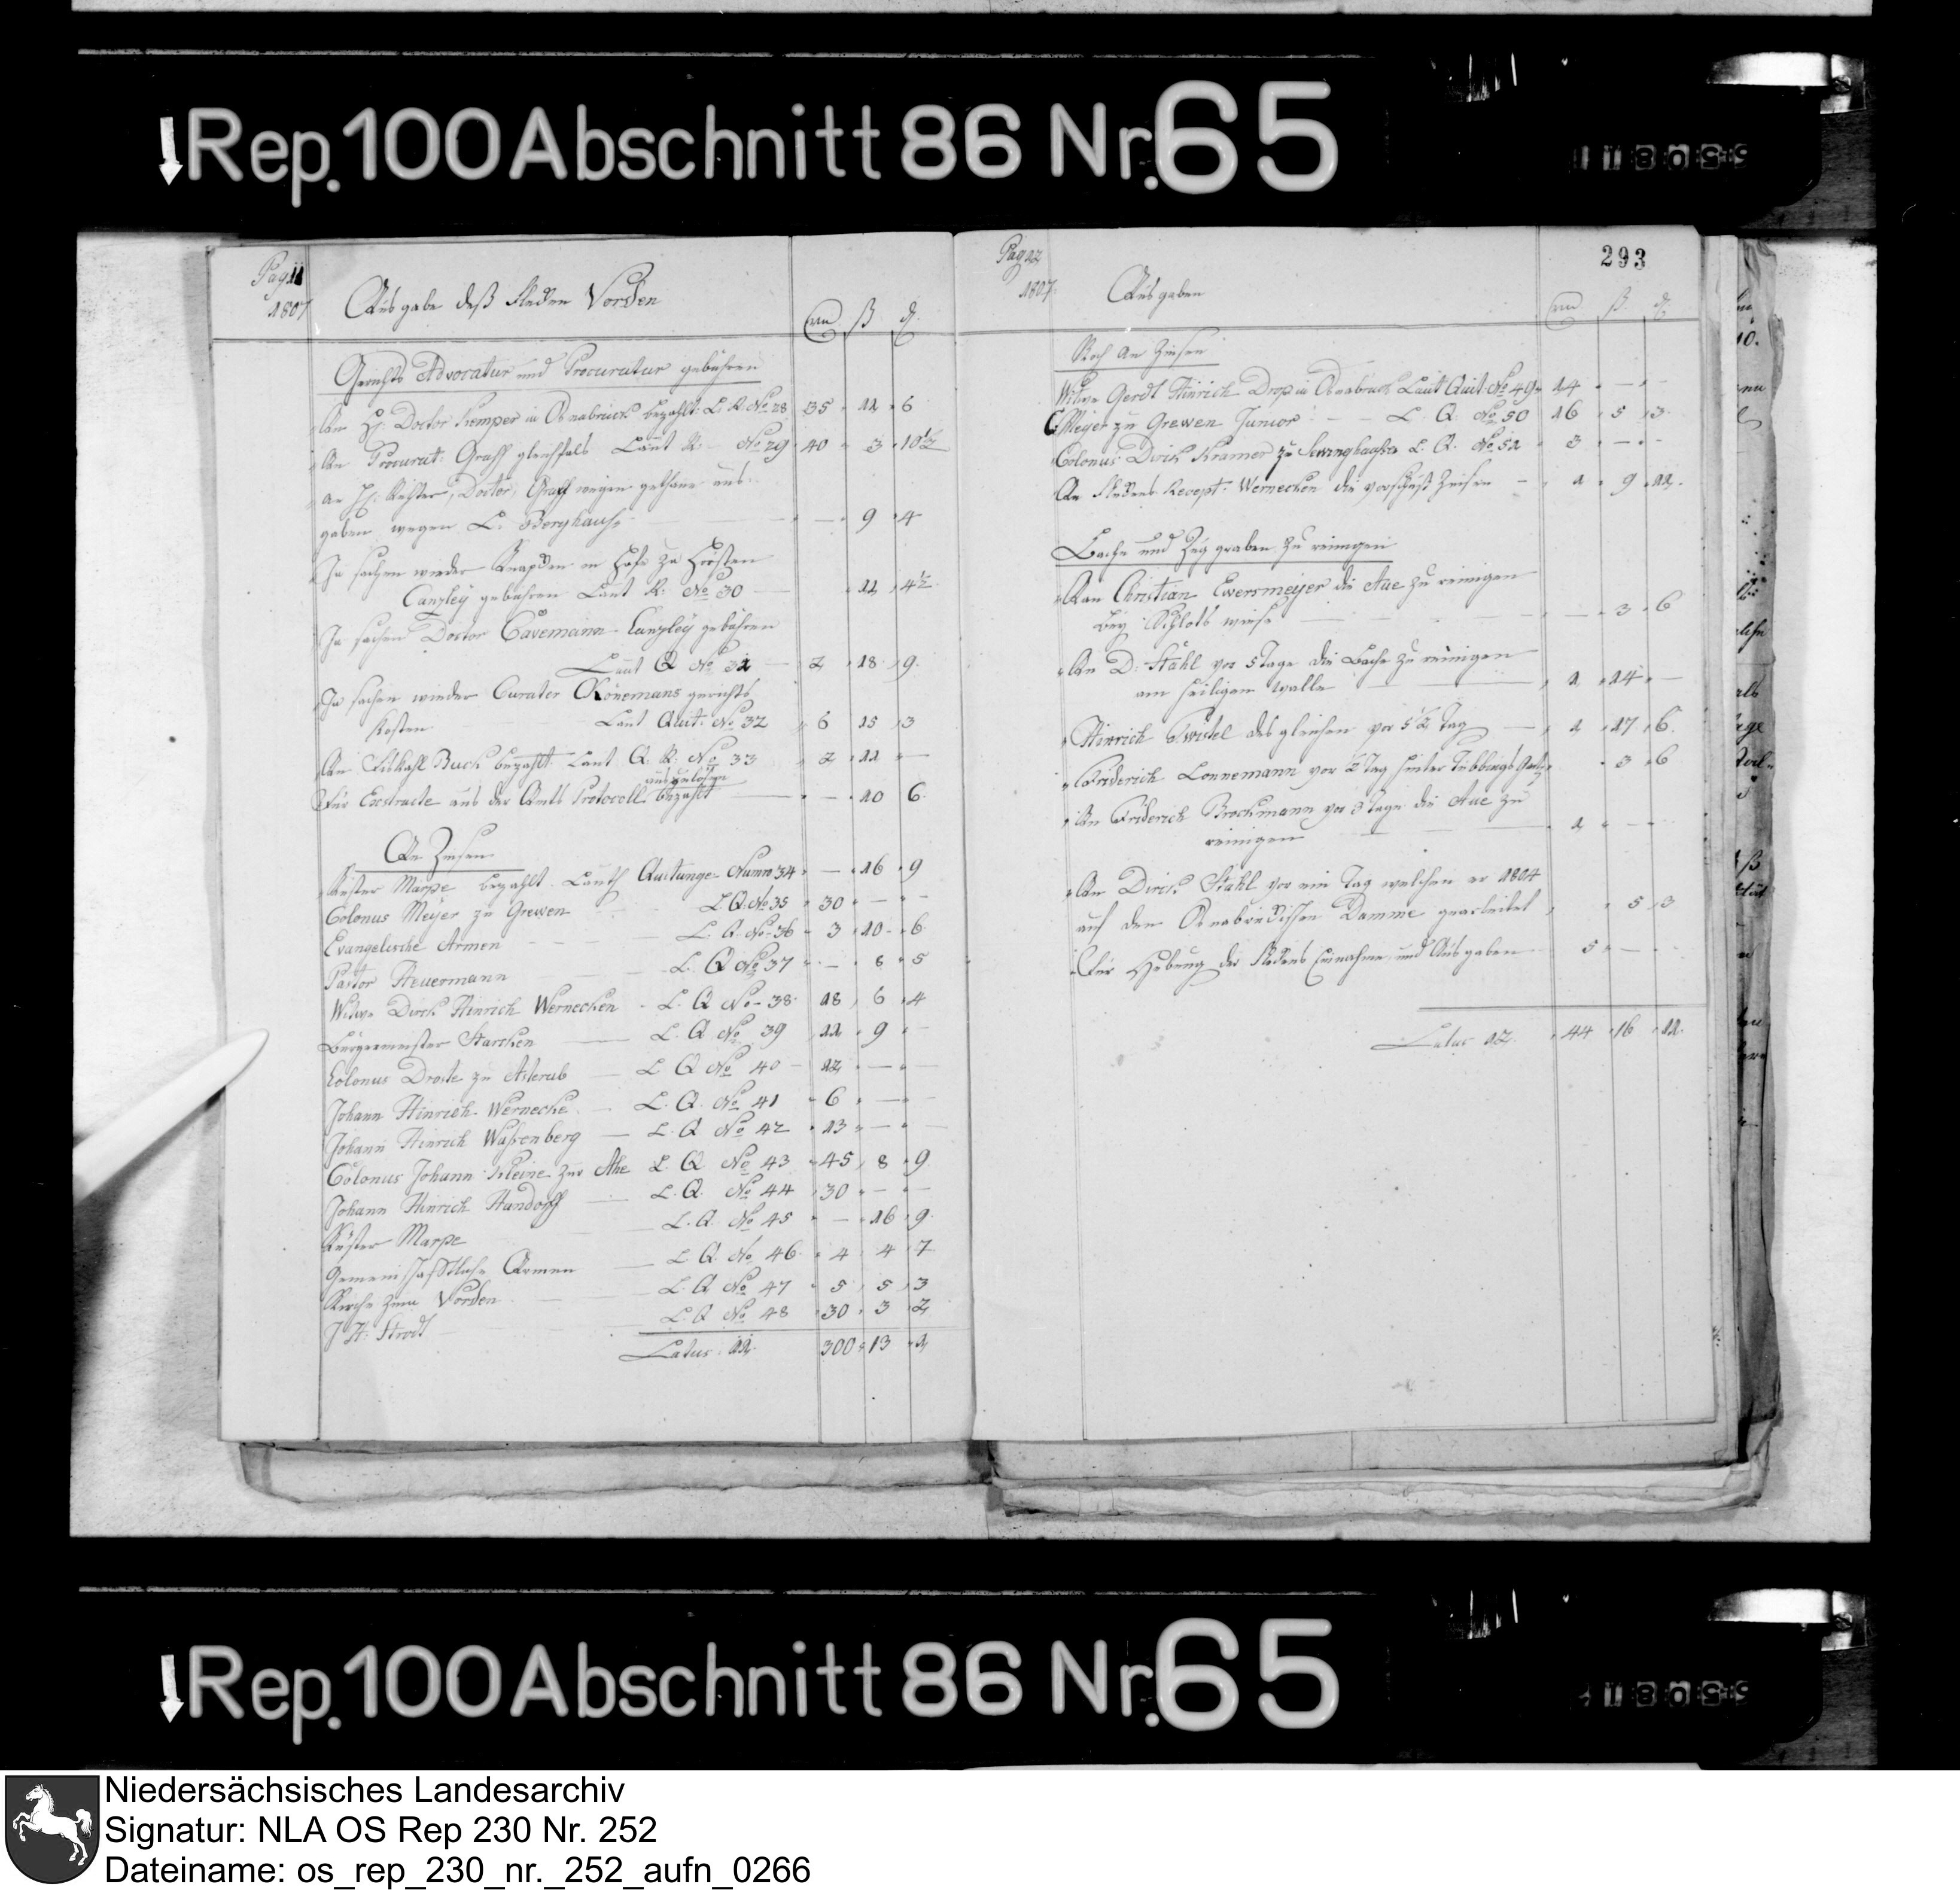 Rep. 100 Abschnitt 86 Nr. 65
Pag 11
1807
Ausgabe deß Fleken Vörden
ß
Gerichts Advocatur und Procuratur gebühren
An H: Doctor Kemper in Osnabrück bezahlt L. R. No 28 35 11 6
An Procurat: Graff gleichfals Laut R. No 29 40 3 10½
An H: Richter, Doctor, Graff wegen gethane aus-
gaben wegen C. Berghaus — 9 4
In sachen wieder im Hofe zu Hörsten
Canzley gebühren Laut R. No 30 11 4½
In sachen Doctor Cavemann Canzley gebühren
Laut Q No 31 2 18 9
In sachen wieder Curater Könemans gerichts
Kosten Laut Quit. No 32 6 15 3
An Fiskahl Buch bezahlt Laut Q. R. No 33 2 11 —
auszulösen
Für Exstracte aus der Amts Protocoll bezahlt — 10 6
An Zinsen
Küster Marpe bezahlt Lauth Quitunge Numro 34 — 16 9
Colonus Meyer zu Grewen L. Q. No 35 30 — —
Evangelische Armen L. Q. No 36 3 10 6
Pastor Steuermann L. Q No 37 — 8 5
Witwe Dirck Hinrich Wernecken L. Q No 38 18 6 4
Bürgermeister Starcken L. Q No 39 11 9 —
Colonus Droste zu Asterub L Q No 40 12 — —
Johann Hinrich Wernecke L. Q. No 41 6 — —
Johann Hinrich Waßenberg L. Q No 42 13 — —
Colonus Johann Kleine zur Ahe L. Q No 43 45 8 9
Johann Hinrich Standorff L. Q. No 44 30 — —
Küster Marpe L. Q. No 45 — 16 9
Gemeinschaftliche Armen L Q. No 46 4 4 7
Kirche zum Vörden L. Q No 47 5 5 3
J H. Strodt L. Q No 48 30 3 2
Latus 11 300 13 1
Pag 12
1807
293
Ausgaben
ß
Noch An Zinsen
Witwe Gerdt Hinrich Drop in Osnabruck Laut Quit. No 49 14 — —
Meyer zu Grewen Junior L. Q. No 50 16 5 3
Colonus Dirck Kramer zu L. Q. No 51 3 — —
An Flekens Recept: Wernecken die vorschuß Zinsen 1 9 11
Bache und Zuggraben zu reinigen
An Christian Ewersmeyer die Aue zu reinigen
bey Schlots wiese — 3 6
An D. Stahl vor 5 Tage die Bache zu reinigen
am heiligen walle 1 14 —
Hinrich Twistel des gleichen vor 5½ Tag 1 17 6
Friderich Lonnemann vor ½ Tag hinter Tübbings 3 6
An Friderich Brockmann vor 3 Tage die Aue zu
reinigen 1 — —
An Dirck Stahl vor ein Tag welchen er 1804
auf den Osnabrückischen Damme gearbeitet 5 3
Für Hebung der Flekens Einnahme und Ausgaben 5 —
Latus 12 44 16 11
Rep. 100 Abschnitt 86 Nr. 65
Niedersächsisches Landesarchiv
Signatur: NLA OS Rep 230 Nr. 252
Dateiname: os_rep_230_nr._252_aufn_0266